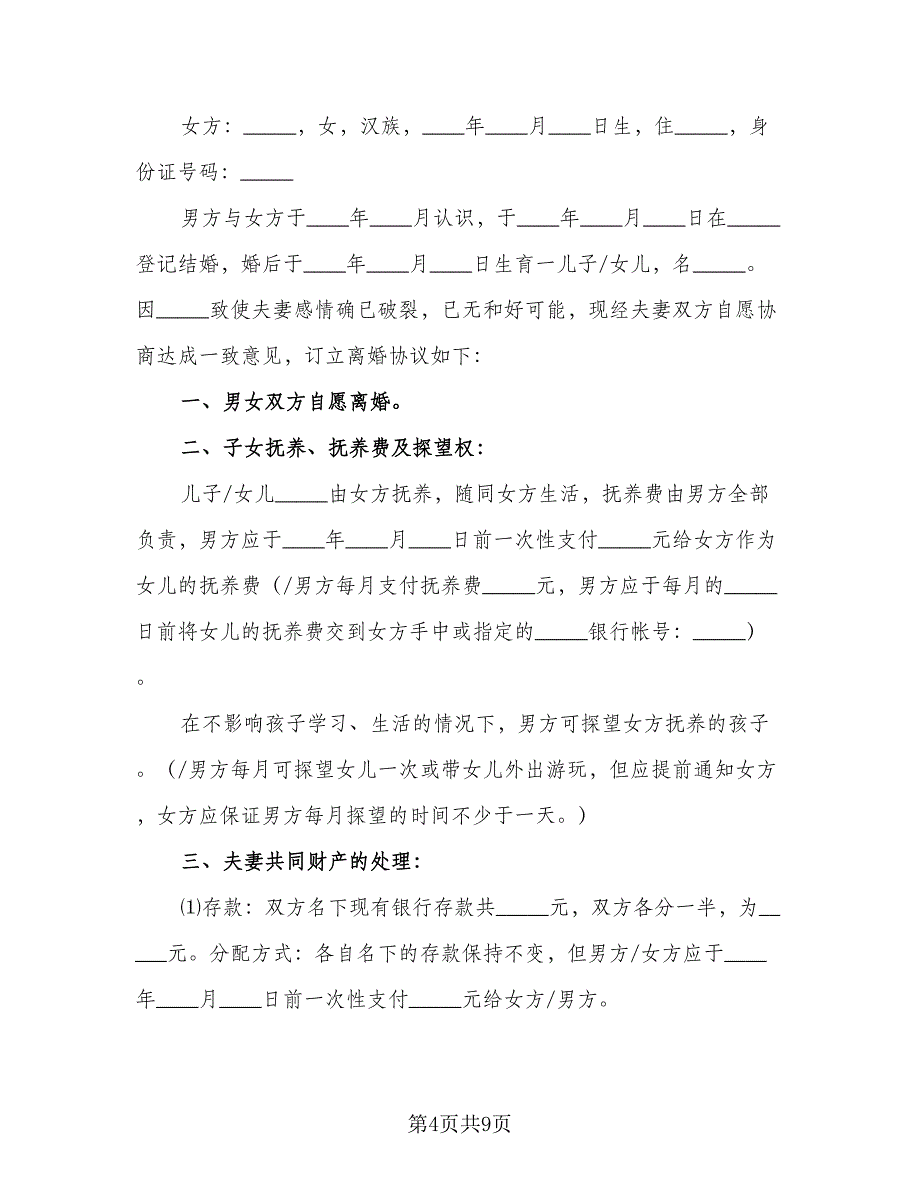 女方：_____，女，汉族，____年____月____日生，住_____，身
份证号码：_____
男方与女方于____年____月认识，于____年____月____日在_____
登记结婚，婚后于____年____月____日生育一儿子/女儿，名_____。
因_____致使夫妻感情确已破裂，已无和好可能，现经夫妻双方自愿协
商达成一致意见，订立离婚协议如下：
一、男女双方自愿离婚。
二、子女抚养、抚养费及探望权：
儿子/女儿_____由女方抚养，随同女方生活，抚养费由男方全部
负责，男方应于____年____月____日前一次性支付_____元给女方作为
女儿的抚养费（/男方每月支付抚养费_____元，男方应于每月的_____
日前将女儿的抚养费交到女方手中或指定的_____银行帐号：_____）
。
在不影响孩子学习、生活的情况下，男方可探望女方抚养的孩子
。（/男方每月可探望女儿一次或带女儿外出游玩，但应提前通知女方
，女方应保证男方每月探望的时间不少于一天。）
三、夫妻共同财产的处理：
⑴存款：双方名下现有银行存款共_____元，双方各分一半，为__
___元。分配方式：各自名下的存款保持不变，但男方/女方应于____
年____月____日前一次性支付_____元给女方/男方。
第4页共9页